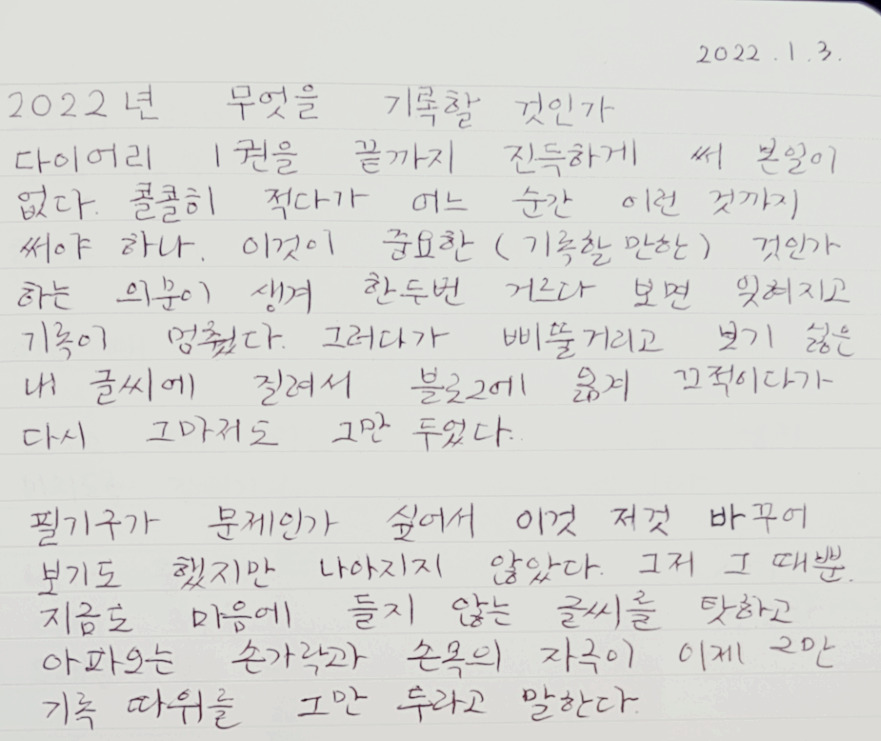 2022.1.3.
2022년 무엇을 기록할 것인가
다이어리 1권을 끝까지 진득하게 써 본일이
없다. 콜콜히 적다가 어느 순간 이런 것까지
써야 하나. 이것이 중요한 (기록할 만한) 것인가
하는 의문이 생겨 한두번 거르다 보면 잊혀지고
기록이 멈췄다. 그러다가 삐뚤거리고 보기 싫은
내 글씨에 질려서 블로그에 옮겨 끄적이다가
다시 그마저도 그만 두었다.
필기구가 문제인가 싶어서 이것 저것 바꾸어
보기도 했지만 나아지지 않았다. 그저 그 때뿐.
지금도 마음에 들지 않는 글씨를 탓하고
아파오는 손가락과 손목의 자극이 이제 그만
기록 따위를 그만 두라고 말한다.